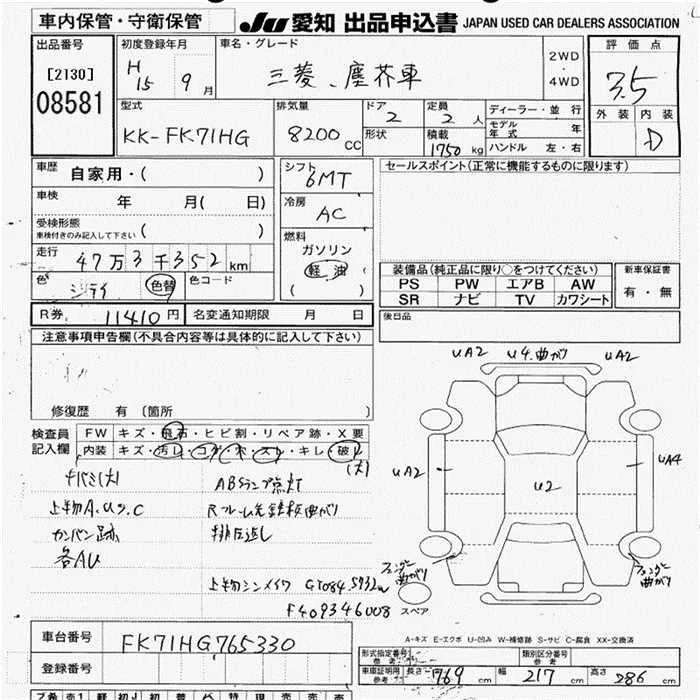 車内保管・守衛保管
JU 愛知 出品申込書 JAPAN USED CAR DEALERS ASSOCIATION
出品番号
[2130]
08581
初度登録年月
H15 9月
車名・グレード
三菱、塵芥車
2WD・4WD
評価点
3.5
外装 内装
D
型式
KK-FK71HG
排気量
8200 cc
ドア
2
形状
定員
2人
積載
1750 kg
ディーラー・並行
モデル年式 年
ハンドル 左・右
車歴
自家用・( )
車検
年 月( 日)
受検形態
車検付きのみ記入して下さい ( )
走行
47万3千352km
色
色替
色コード
シフト
6MT
冷房
AC
燃料
ガソリン
軽油
( )
セールスポイント(正常に機能するものに限ります)
装備品(純正品に限り○をつけてください)
PS PW エアB AW
SR ナビ TV カワシート
新車保証書
有・無
後日品
R券 11410円
名変通知期限 月 日
注意事項申告欄(不具合内容等は具体的に記入して下さい)
修復歴 有 (箇所 )
検査員記入欄
FW キズ・飛石・ヒビ割・リペア跡・X要
内装 キズ・汚レ・コゲ・穴・スレ・キレ・破レ
(大)
キバミ(大)
上物A.U.S.C
カンバン跡
各AU
ABSランプ点灯
Rフレーム先鉄板曲がり
排圧返し
上物シンメイワ
F409346008
UA2 U4.曲がり UA2
UA2
U2
UA4
フェンダー曲がり
フェンダー曲がり
スペア
A-キズ E-エクボ U-凹み W-補修跡 S-サビ C-腐食 XX-交換済
車台番号
FK71HG765330
登録番号
形式指定番号
参考:
類別区分番号
参考:
車庫証明用
参考:
長さ 769 cm 幅 217 cm 高さ 286 cm